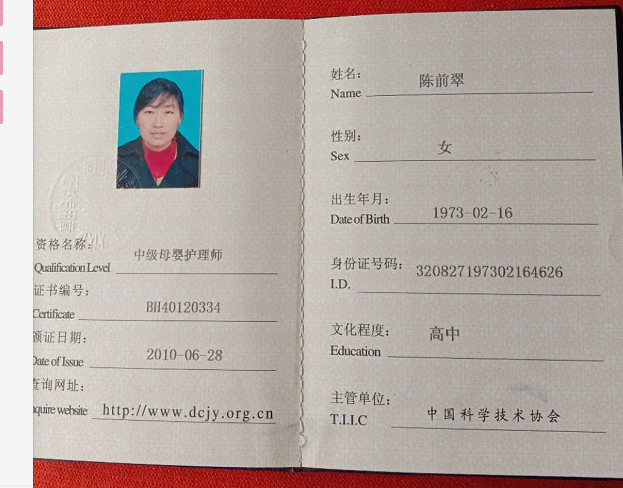 资格名称:
中级母婴护理师
Qualification Level
证书编号:
BH40120334
Certificate
颁证日期:
2010-06-28
Date of Issue
查询网址:
nquire website http://www.dcjy.org.cn
姓名:
陈前翠
Name
性别:
女
Sex
出生年月:
1973-02-16
Date of Birth
身份证号码:
320827197302164626
I.D.
文化程度:
高中
Education
主管单位:
中国科学技术协会
T.I.I.C